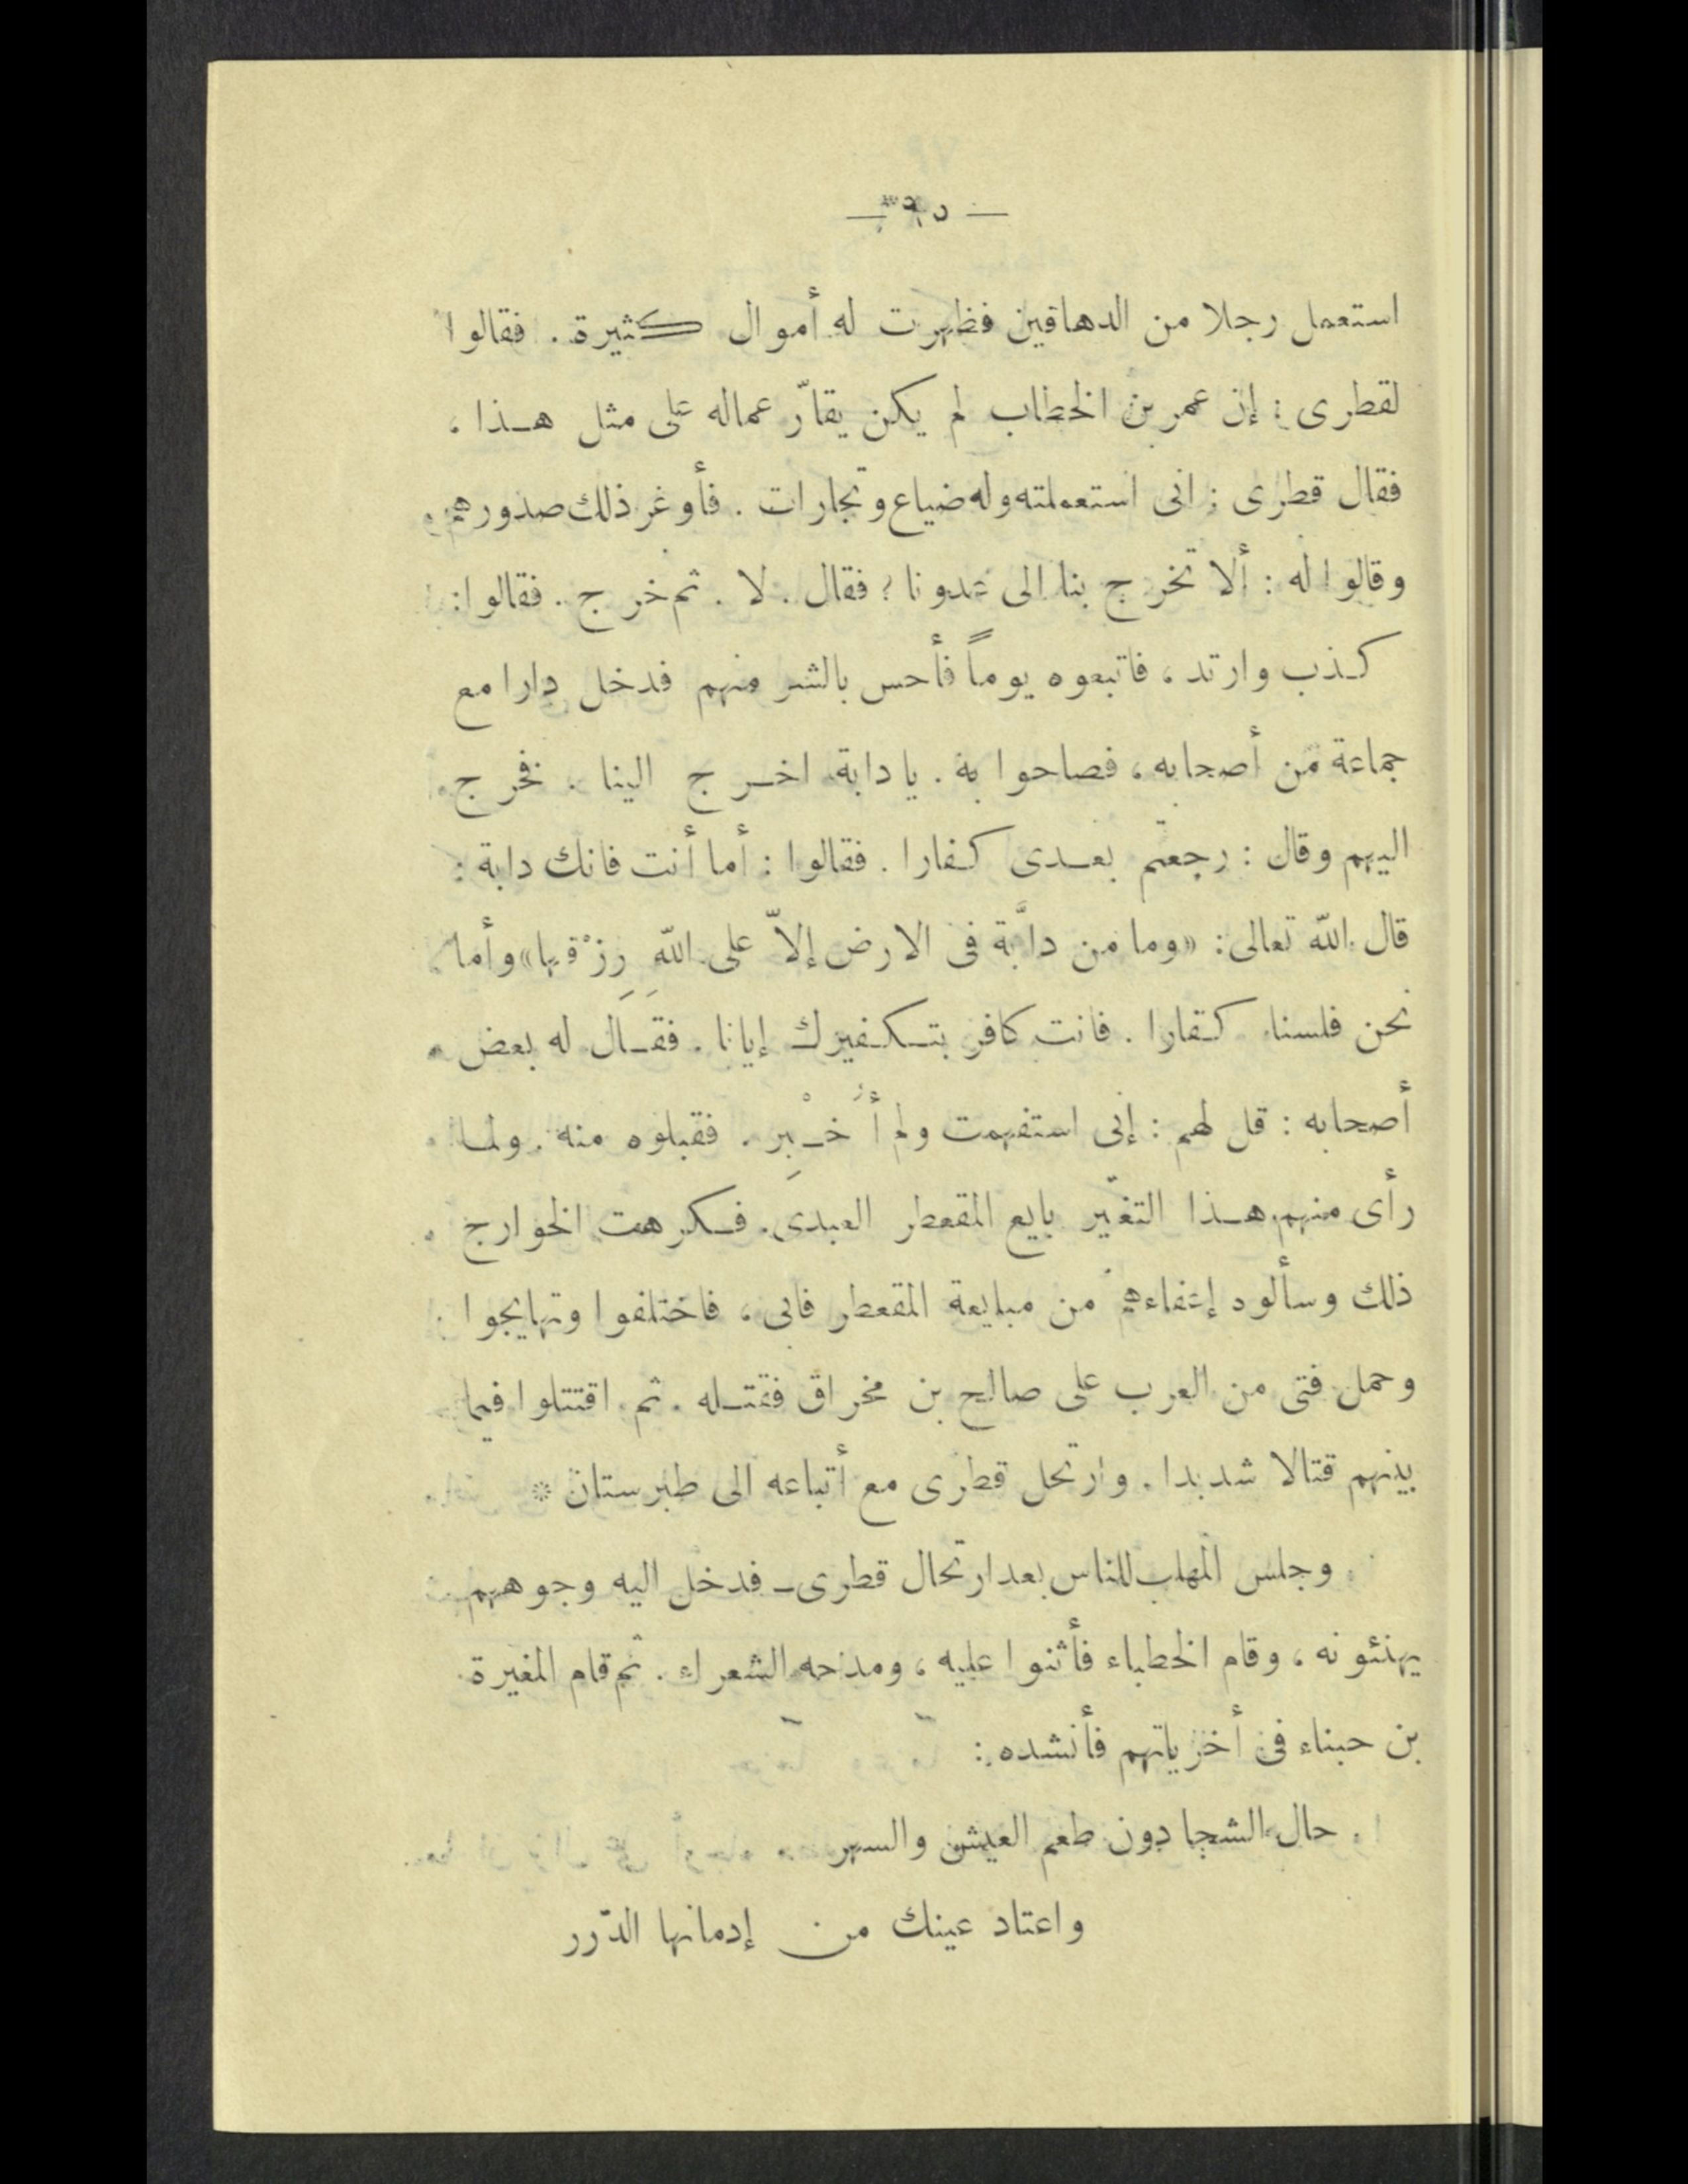 استعمل رجلا من الدهاقين فظهرت له أموال كثيرة . فقالوا
لقطرى : إن عمر بن الخطاب لم يكن يقارّ عماله على مثل هـذا ،
فقال قطرى : انى استعملته وله ضياع وتجارات . فأوغر ذلك صدورهم
وقالوا له : ألا تخرج بنا الى عدونا ؟ فقال . لا . ثم خرج . فقالوا :
كذب وارتد ، فاتبعوه يوماً فأحس بالشر منهم فدخل دارا مع
جماعة من أصحابه ، فصاحوا به . يا دابة اخـرج الينا . فخرج
اليهم وقال : رجعتم بعـدى كفارا . فقالوا : أما أنت فانك دابة :
قال الله تعالى : «وما من دابَّة فى الارض إلاّ على اللهِ رِزْقها» وأما
نحن فلسنا كفارا . فانت كافر بتـكـفيرك إيانا . فقـال له بعض
أصحابه : قل لهم : إنى استفهمت ولم أُخـْبِر . فقبلوه منه . ولما
رأى منهم هـذا التغيّر بايع المقعطر العبدى . فـكرهت الخوارج
ذلك وسألوه إعفاءهم من مبايعة المقعطر فابى ، فاختلفوا وتهايجوا
وحمل فتى من العرب على صالح بن مخراق فقتـله . ثم اقتتلوا فيما
بينهم قتالا شديدا . وارتحل قطرى مع أتباعه الى طبرستان *
وجلس المهلب للناس بعد ارتحال قطرى ـ فدخل اليه وجوههم
يهنئونه ، وقام الخطباء فأثنوا عليه ، ومدحه الشعراء . ثم قام المغيرة
بن حبناء فى أخرياتهم فأنشده :
حال الشجا دون طعم العيش والسهر
واعتاد عينك من إدمانها الدّرر